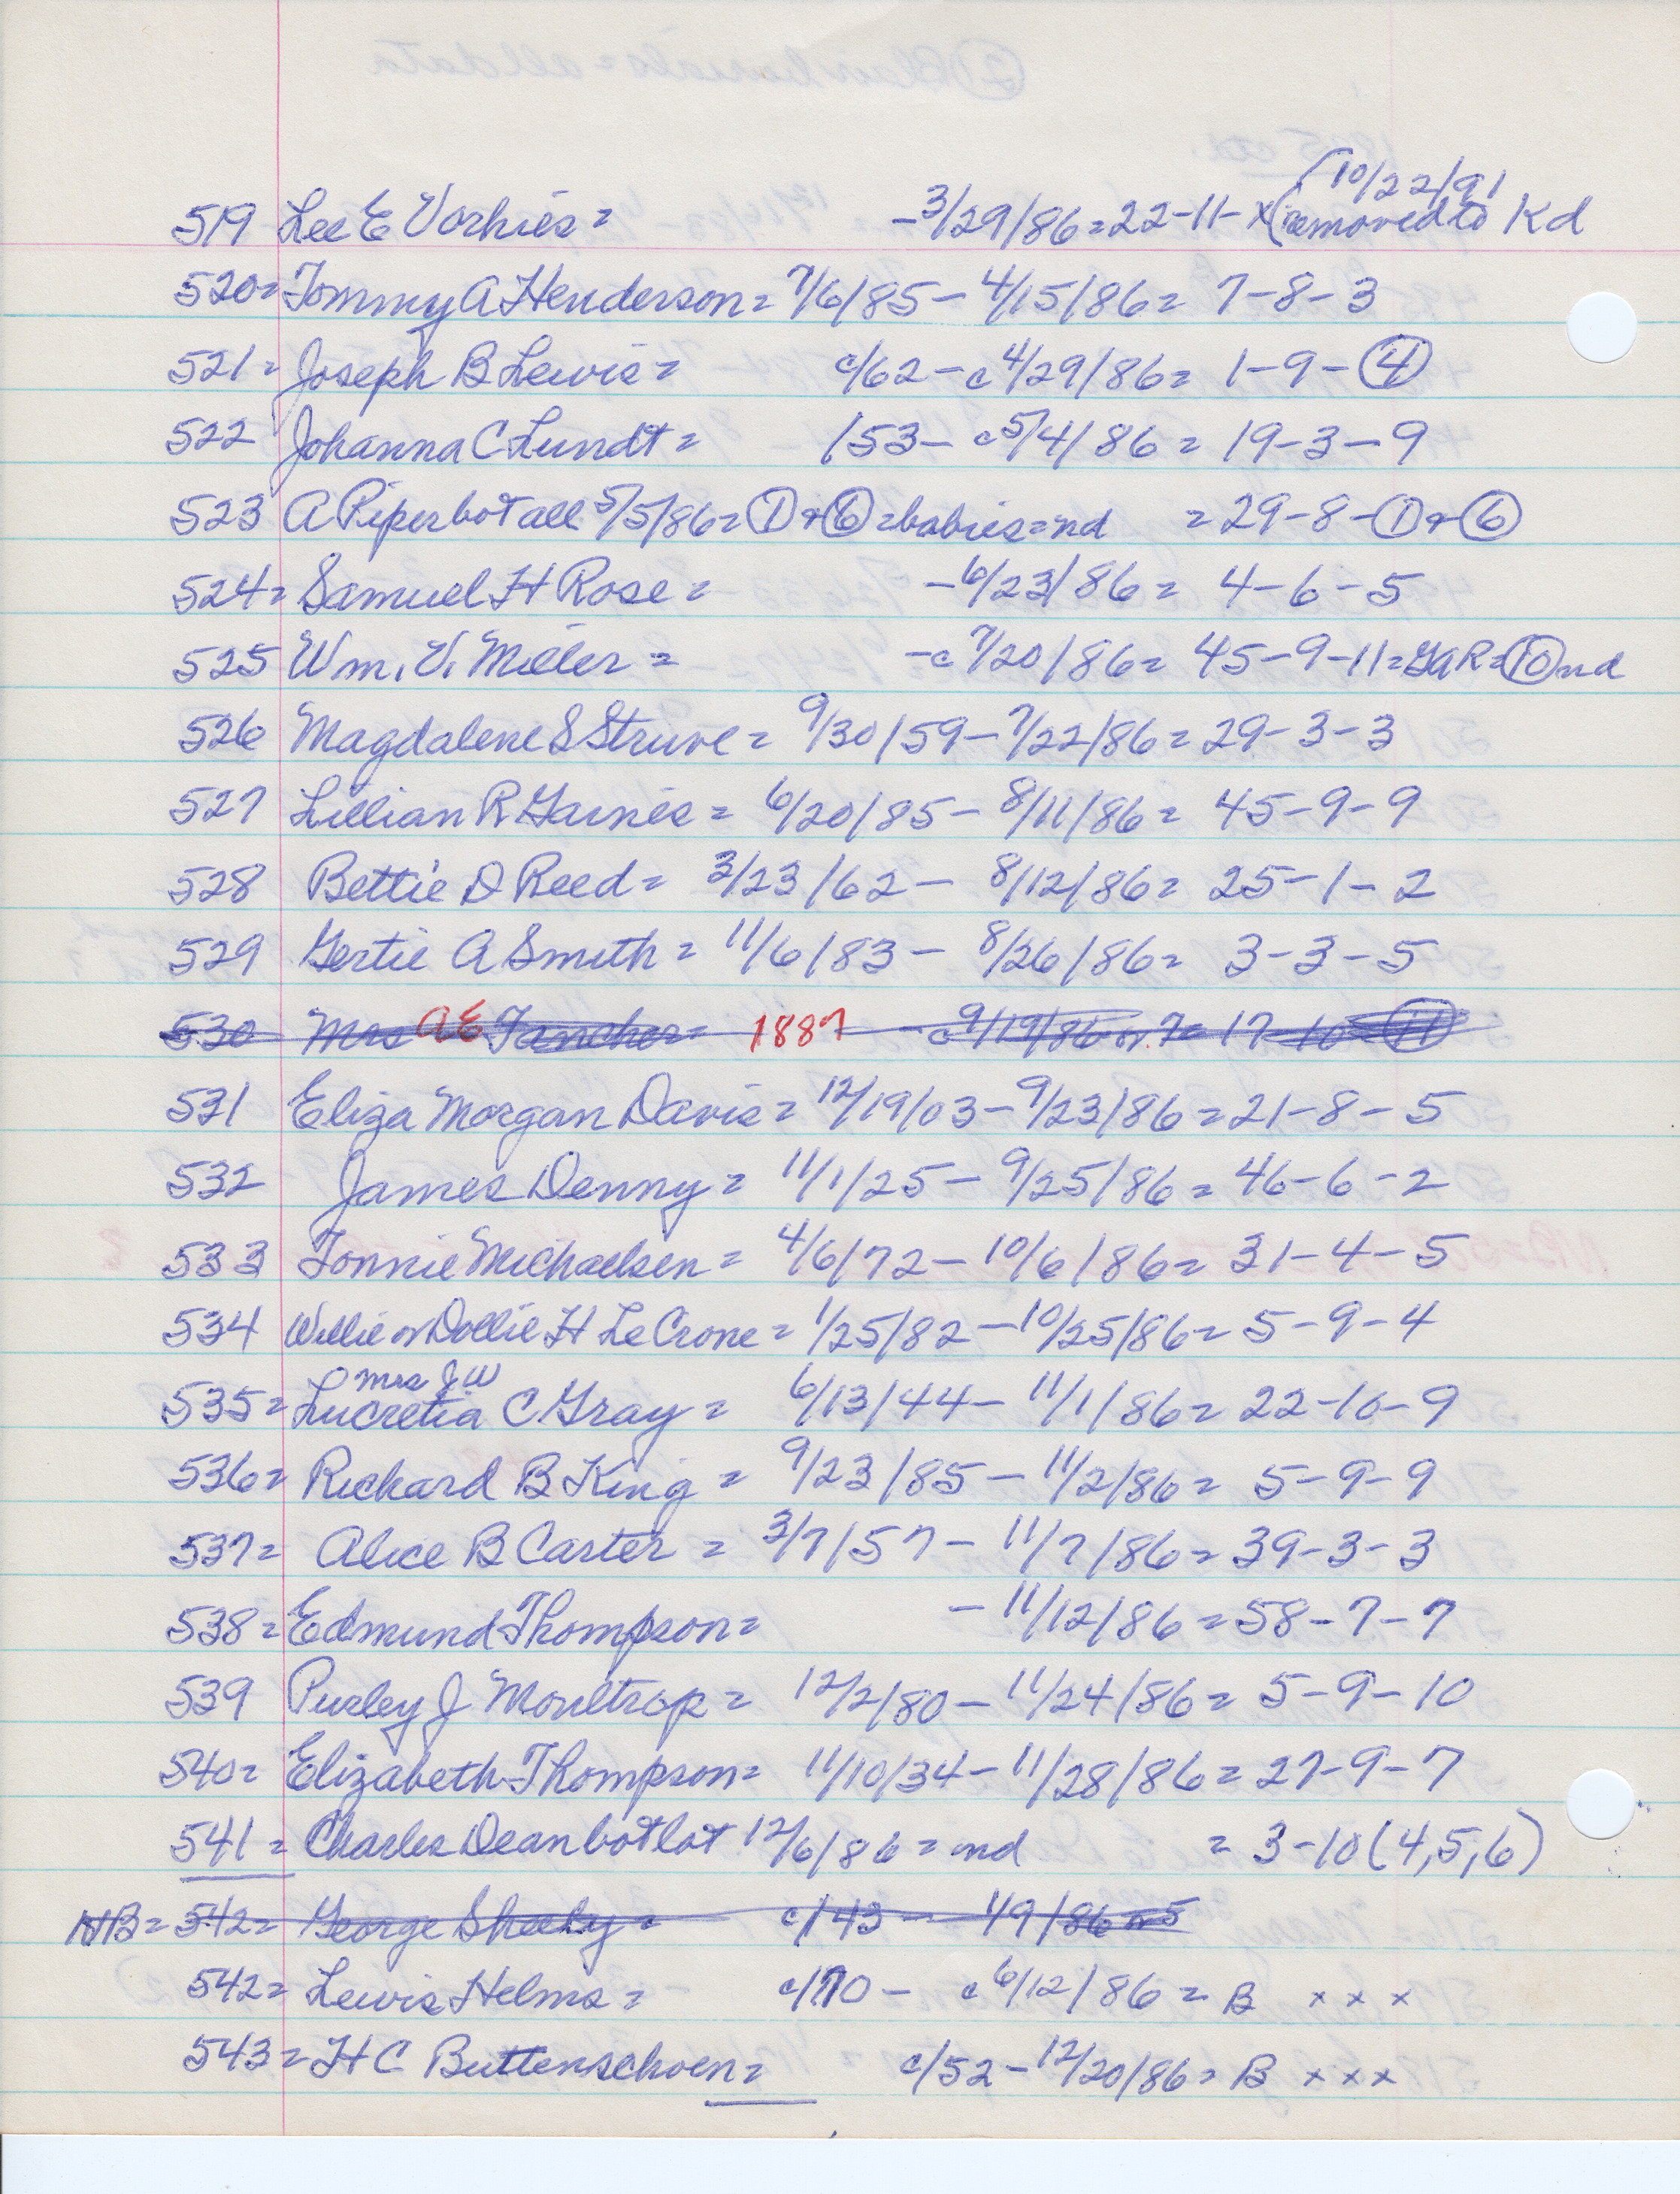 10/22/91
519 Lee E Vorhies = - 3/29/86 = 22-11- x (removed to Kd
520 = Tommy A Henderson = 7/6/85 - 4/15/86 = 7-8-3
521 = Joseph B Lewis = c/62 - c 4/29/86 = 1-9-④
522 Johanna C Lundt = /53 - c 5/4/86 = 19-3-9
523 A Piper bot all 5/5/86 = ① + ⑥ = babies = nd = 29-8-① + ⑥
524 = Samuel H Rose = - 6/23/86 = 4-6-5
525 Wm. V. Miller = - c 7/20/86 = 45-9-11 = GAR = ⑩ nd
526 Magdalene S Struve = 9/30/59 - 7/22/86 = 29-3-3
527 Lillian R Gaines = 6/20/85 - 8/11/86 = 45-9-9
528 Bettie D Reed = 3/23/62 - 8/12/86 = 25-1-2
529 Gertie A Smith = 11/6/83 - 8/26/86 = 3-3-5
530 Mrs A E Fancher = 1887 - c 9/19/86 or 7 = 17-10-⑪
531 Eliza Morgan Davis = 12/19/03 - 9/23/86 = 21-8-5
532 James Denny = 11/1/25 - 9/25/86 = 46-6-2
533 Tonnie Michaelsen = 4/6/72 - 10/6/86 = 31-4-5
534 Willie or Dollie H LeCrone = 1/25/82 - 10/25/86 = 5-9-4
Mrs J W
535 = Lucretia C Gray = 6/13/44 - 11/1/86 = 22-10-9
536 = Richard B King = 9/23/85 - 11/2/86 = 5-9-9
537 = Alice B Carter = 3/7/57 - 11/7/86 = 39-3-3
538 = Edmund Thompson = - 11/12/86 = 58-7-7
539 Purley J Moultrop = 12/2/80 - 11/24/86 = 5-9-10
540 = Elizabeth Thompson = 11/10/34 - 11/28/86 = 27-9-7
541 = Charles Dean bot lot 12/6/86 = nd = 3-10 (4,5,6)
NB = 542 = George Sheely = c/43 - 1/9/86 or 5
542 = Lewis Helms = c/70 - c 6/12/86 = B x x x
543 = H C Buttenschoen = c/52 - 12/20/86 = B x x x